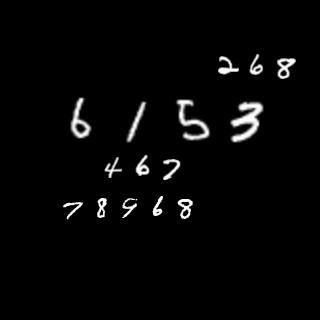 268
6153
467
78968